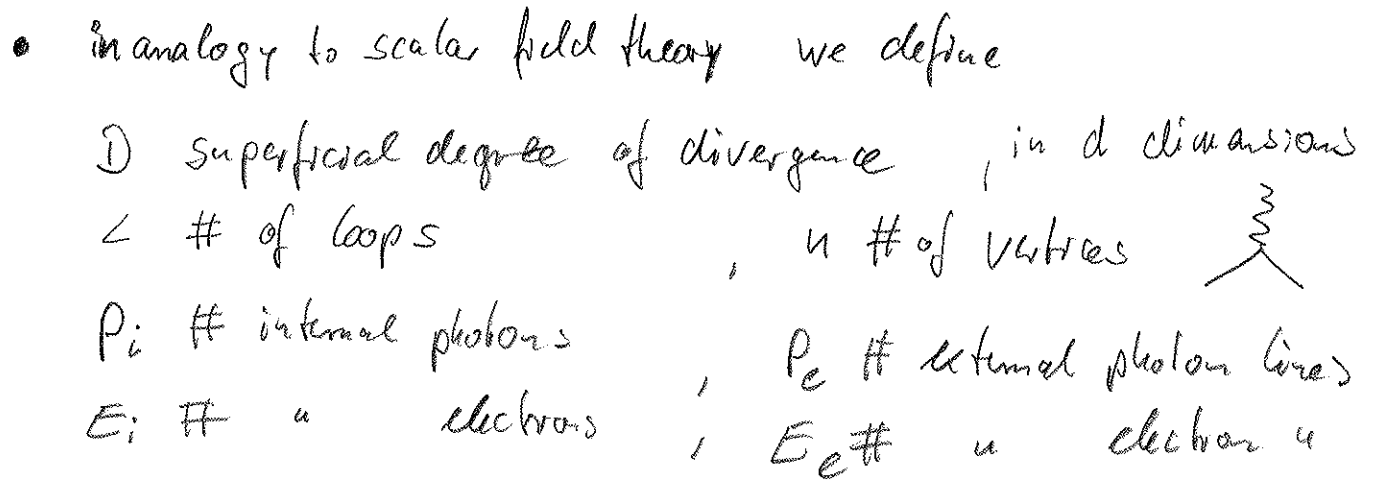 • in analogy to scalar field theory we define
D superficial degree of divergence , in d dimensions
L # of loops , n # of vertices
Pi # internal photons , Pe # external photon lines
Ei # " electrons , Ee # " electron "